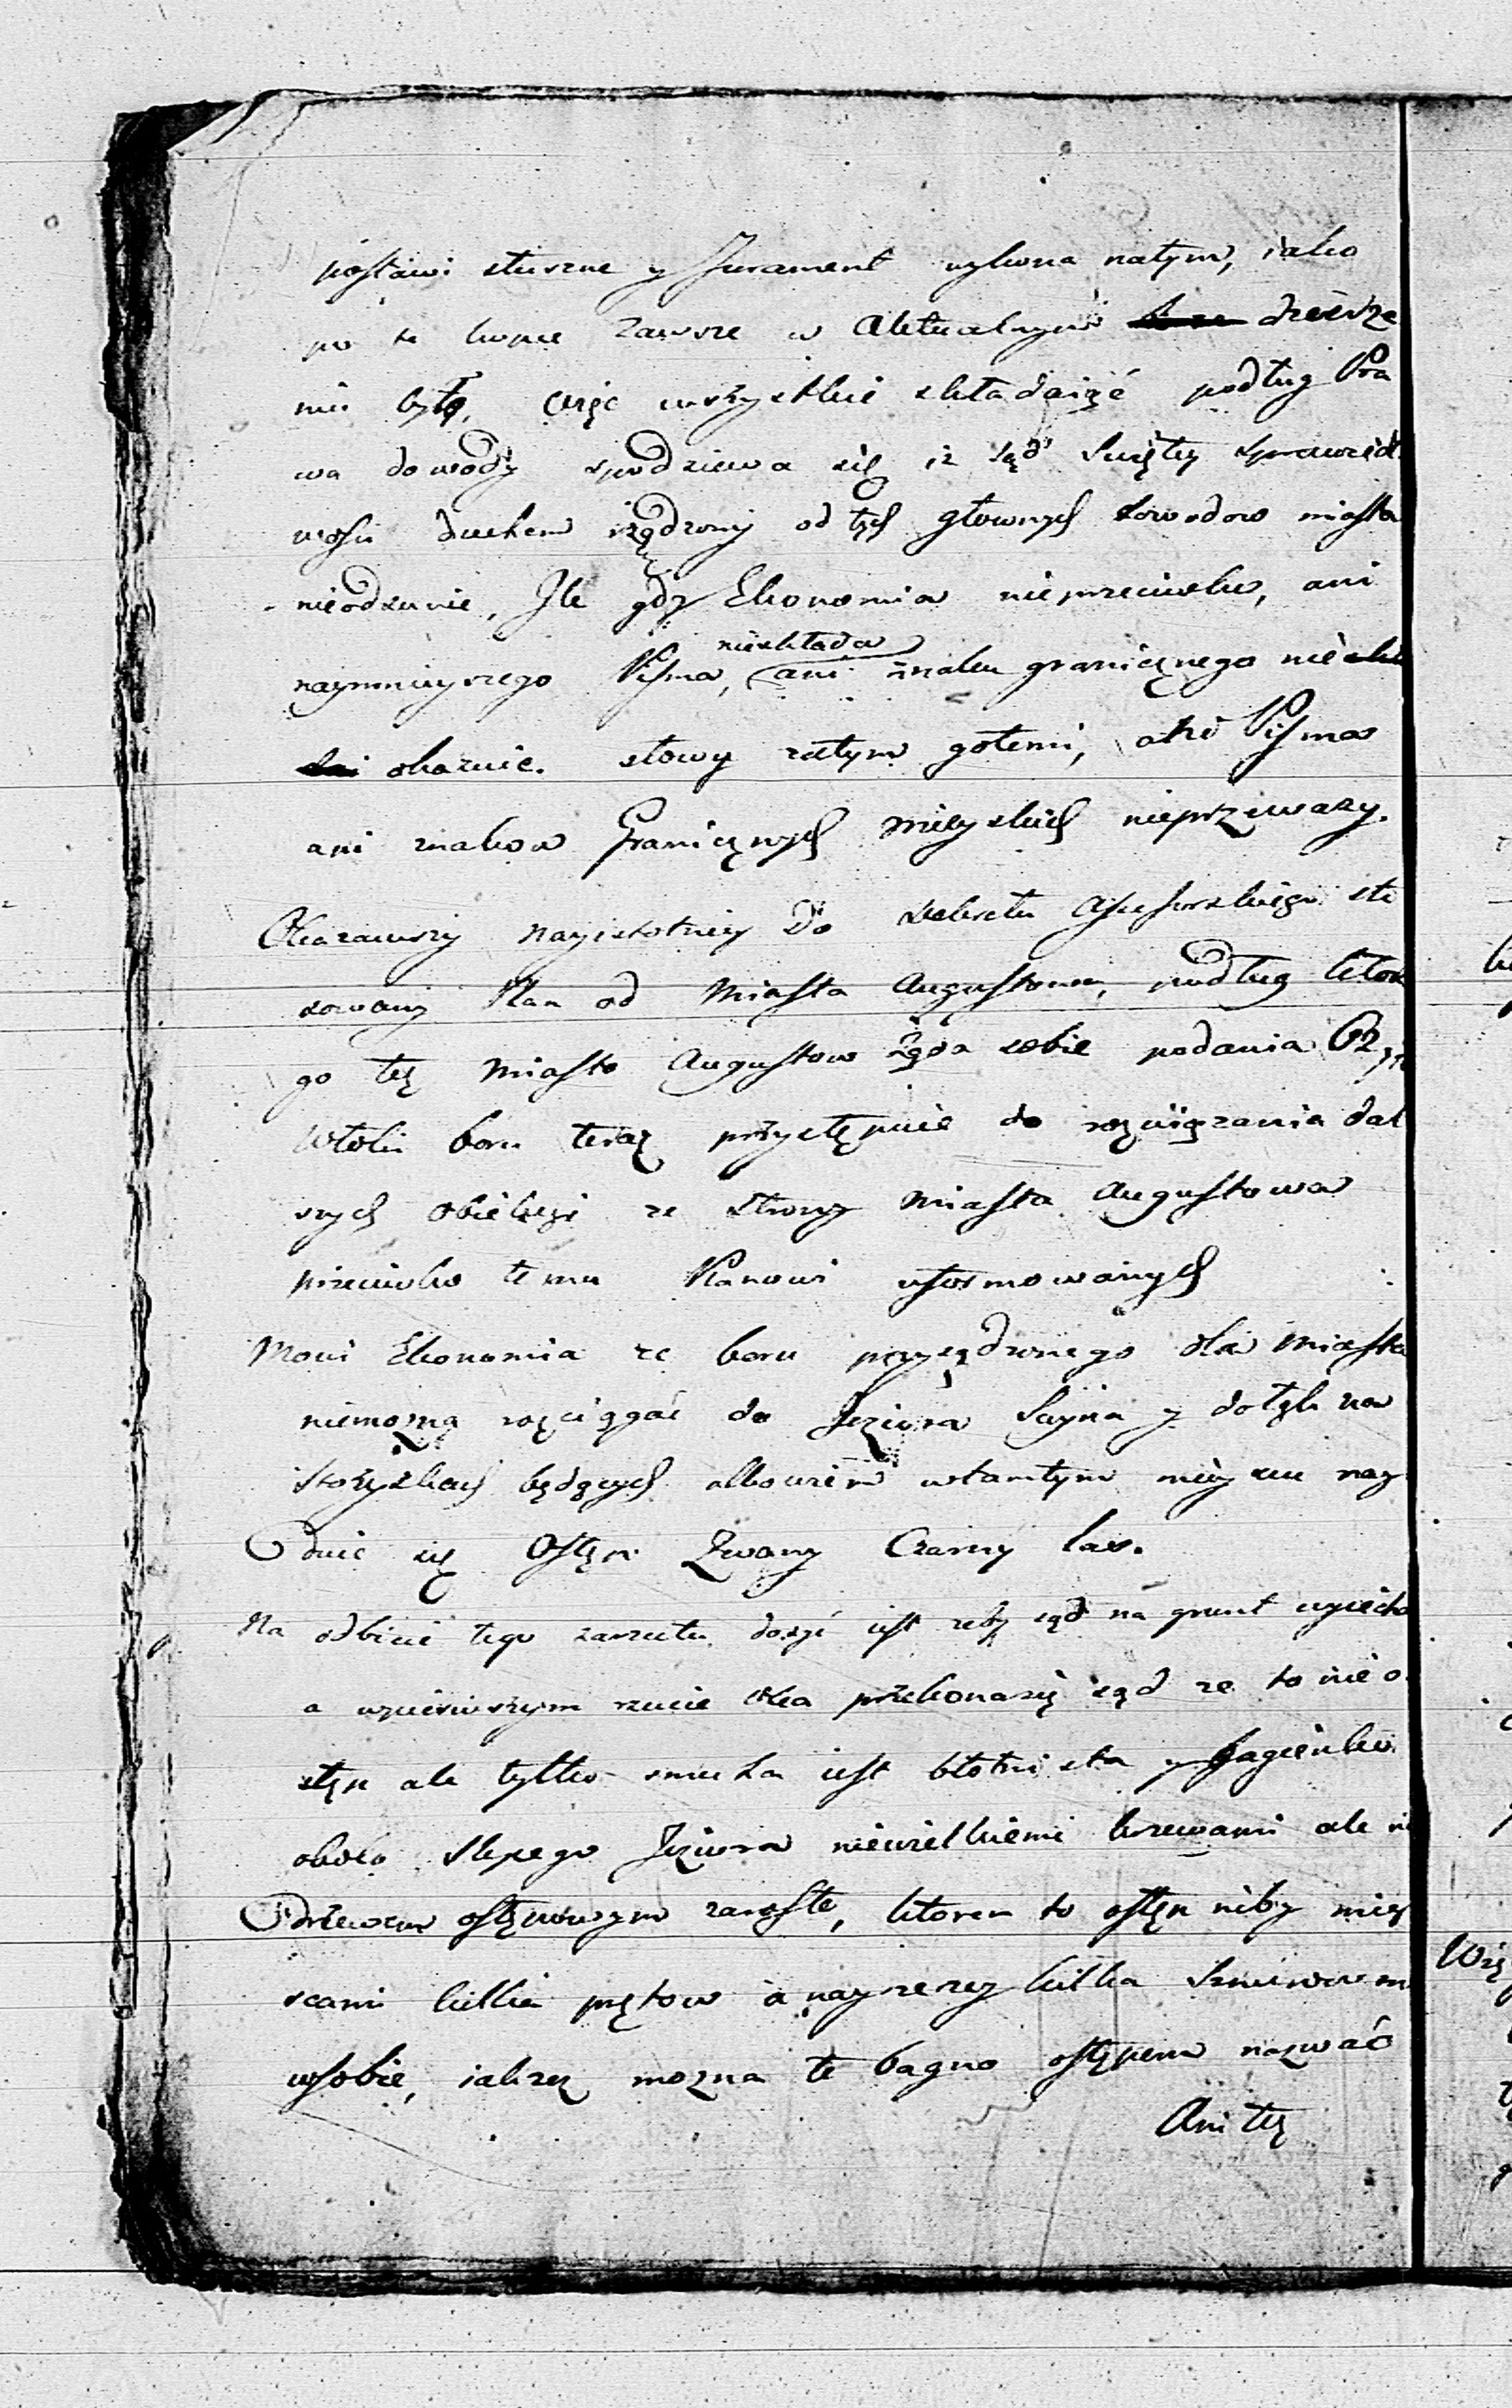 postawi sturzne y Jurament wykona natym, iako
po te kopce zawsze w Aktualnym dzierże
niu były. więc wszystkie składaiąć podług Pra
wa dowody spodziewa się iz sąd święty sprawied
wości duchem rządzony od tych głownych dowodow miasta
nieodsunie, Ile gdy Ekonomia nieprzeciwko, ani
naymnieyszego Pisma, nieskłada ani znaku granicznego nie
okazuie. słowy zatym gołemi, ani Pisma
ani znakow Granicznych mieyskich nieprzeważy.
Okazawszy nayistotniey do dekretu Assesorskiego sto
sowany Plan od Miasta Augustowa, podług ktore
go też Miasto Augustow żąda sobie podania
wtoli boru teraz przystępuie do rozwiązania dal
szych Obiekcyi ze strony Miasta Augustowa
przeciwko temu Planowi uformowanych
Mowi Ekonomia ze boru przysądzonego dla Miasta
niemożna rościągać do Jeziora Sayna y dotąk na
Stożyskach będących albowiem wtamtym mieyscu nay
duie się Ostęp Zwany Czarny las.
Na odbicie tego zarzutu dosyć iest żeby sąd na grunt wyiecha
a wpierwszym rzucie Oka przekonasię sąd ze to nie o
stęp ale tylko smuha iest błotnista y bagienko
około Slepego Jeziora niewielkiemi krzewami ale ni
drzewem ostępowym zarosłe, ktoren to ostęp niby miey
scami kilka prętow a nayszerzey kilka Sznurow m
wsobie, iakże można te bagno ostępem nazwać
Ani też